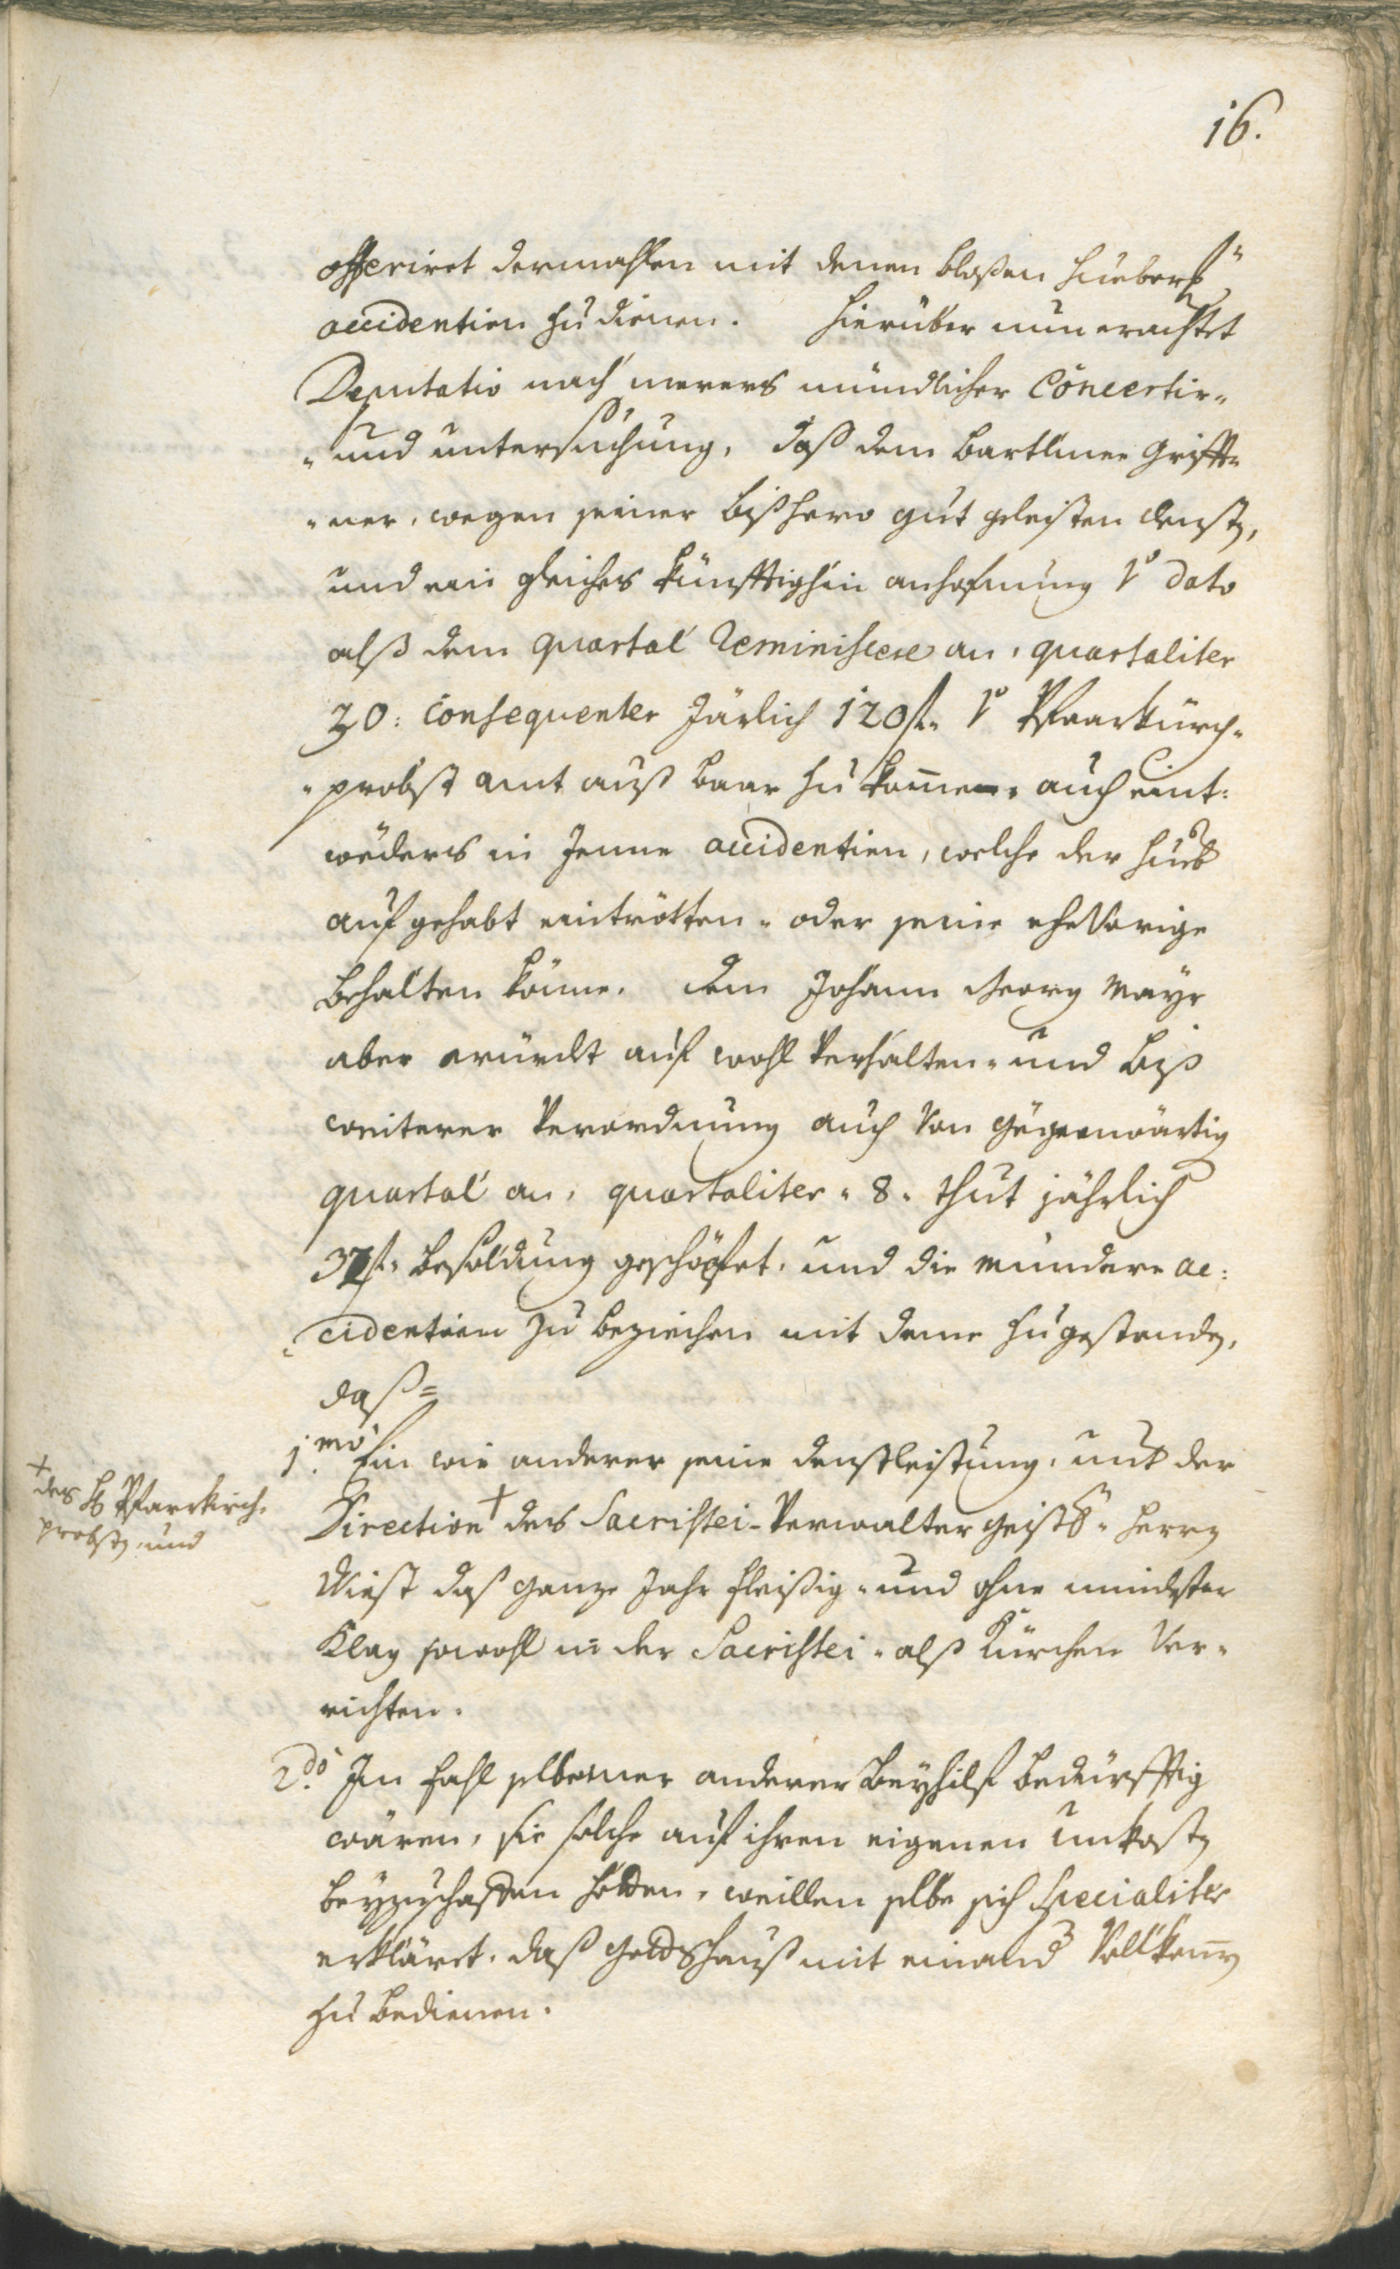 16.
offeriret dermahlen mit denen bloßen Hueber¨
accidentien zu dienen. Hierüber nun erachtet
Deputatio nach merers mündlicher Concertir-
und untersuchung, daß dem Bartlmee Griff-
ner, wegen seiner bißhero gut gleisten denst,
und ein gleiches künfftighin anhofnung dato
alß dem quartal Reminiscere an, quartaliter
30: consequenter Järlich 120 f. Pfaarkürch-
probst amt auß baar zu kommen, auch eint:
wëders in Jenne accidentien, welche der Hueb
auf gehabt eintrötten, oder seine ehevorige
behalten könne. dem Johann Georg Mayr
aber würdt auf wohl verhalten, und biß
weiterer Verordnung auch von gegenwärtig
quartal an, quartaliter 8. thut jährlich
32 f. besoldung geschöpfet, und die mündere ac:
cidentien zu beziechen mit deme zugestanden,
daß=
1.mo Ein wie anderer seine denstleistung, unter der
Direction + des Sacristei-Verwalter geistl. Herrn
Wiest daß ganze Jahr fleißig, und ohne mindester
Klag sowohl in der Sacristei, alß Kürchen ver-
richten.
+ des H. Pfarrkirch-
probsten, und
2.do Im fahl selbe einer anderer Beyhilf bedürfftig
wären, sie solche auf ihren eigenen unkosten
beyzuschaffen hetten, weillen selbe sich specialiter
erkläret, daß Gottshauß mit einand vollkommen
zu bedienen.